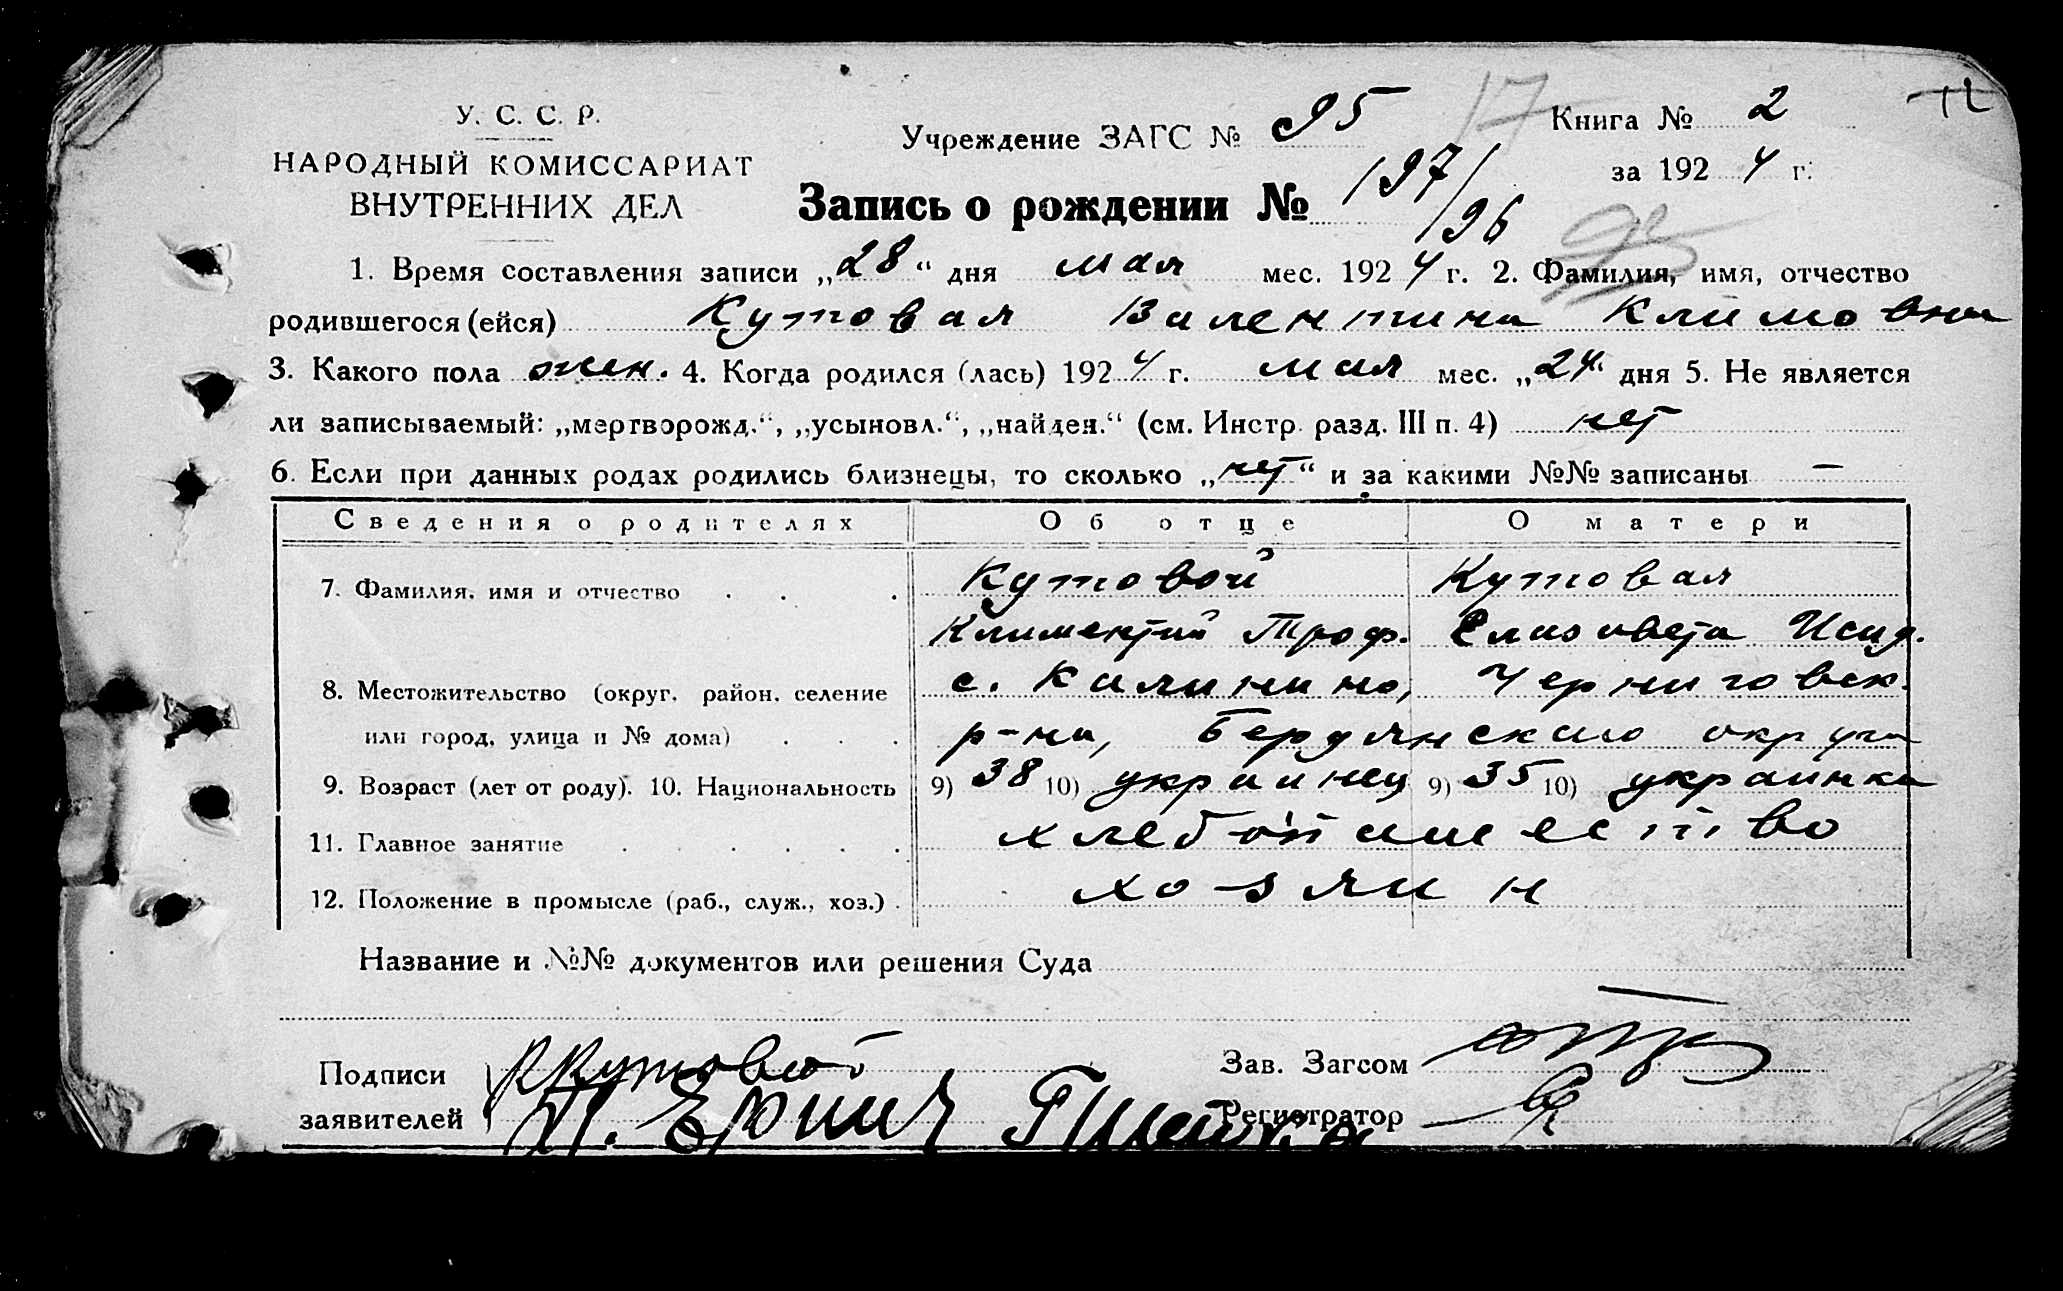 У. С. С. Р.
НАРОДНЫЙ КОМИССАРИАТ
ВНУТРЕННИХ ДЕЛ
Учреждение ЗАГС № 95
17
Книга № 2
за 1924 г.
Запись о рождении № 197/96
95
1. Время составления записи „28“ дня мая мес. 1924 г. 2. Фамилия, имя, отчество
родившегося (ейся) Кутовая Валентина Климовна
3. Какого пола жен. 4. Когда родился (лась) 1924 г. мая мес. „24“ дня 5. Не является
ли записываемый: „мертворожд.“, „усыновл.“, „найден.“ (см. Инстр. разд. III п. 4) нет
6. Если при данных родах родились близнецы, то сколько „нет“ и за какими №№ записаны —
Сведения о родителях Об отце О матери
7. Фамилия, имя и отчество Кутовой Кутовая
Климентий Троф. Елизовета Исид.
8. Местожительство (округ, район, селение с. Калинино, Черниговск.
или город, улица и № дома) р-на, Бердянского округа
9. Возраст (лет от роду). 10. Национальность 9) 38 10) украинец 9) 35 10) украинка
11. Главное занятие хлебопашество
12. Положение в промысле (раб., служ., хоз.) хозяин
Название и №№ документов или решения Суда
Подписи Кутовой Зав. Загсом
заявителей Регистратор